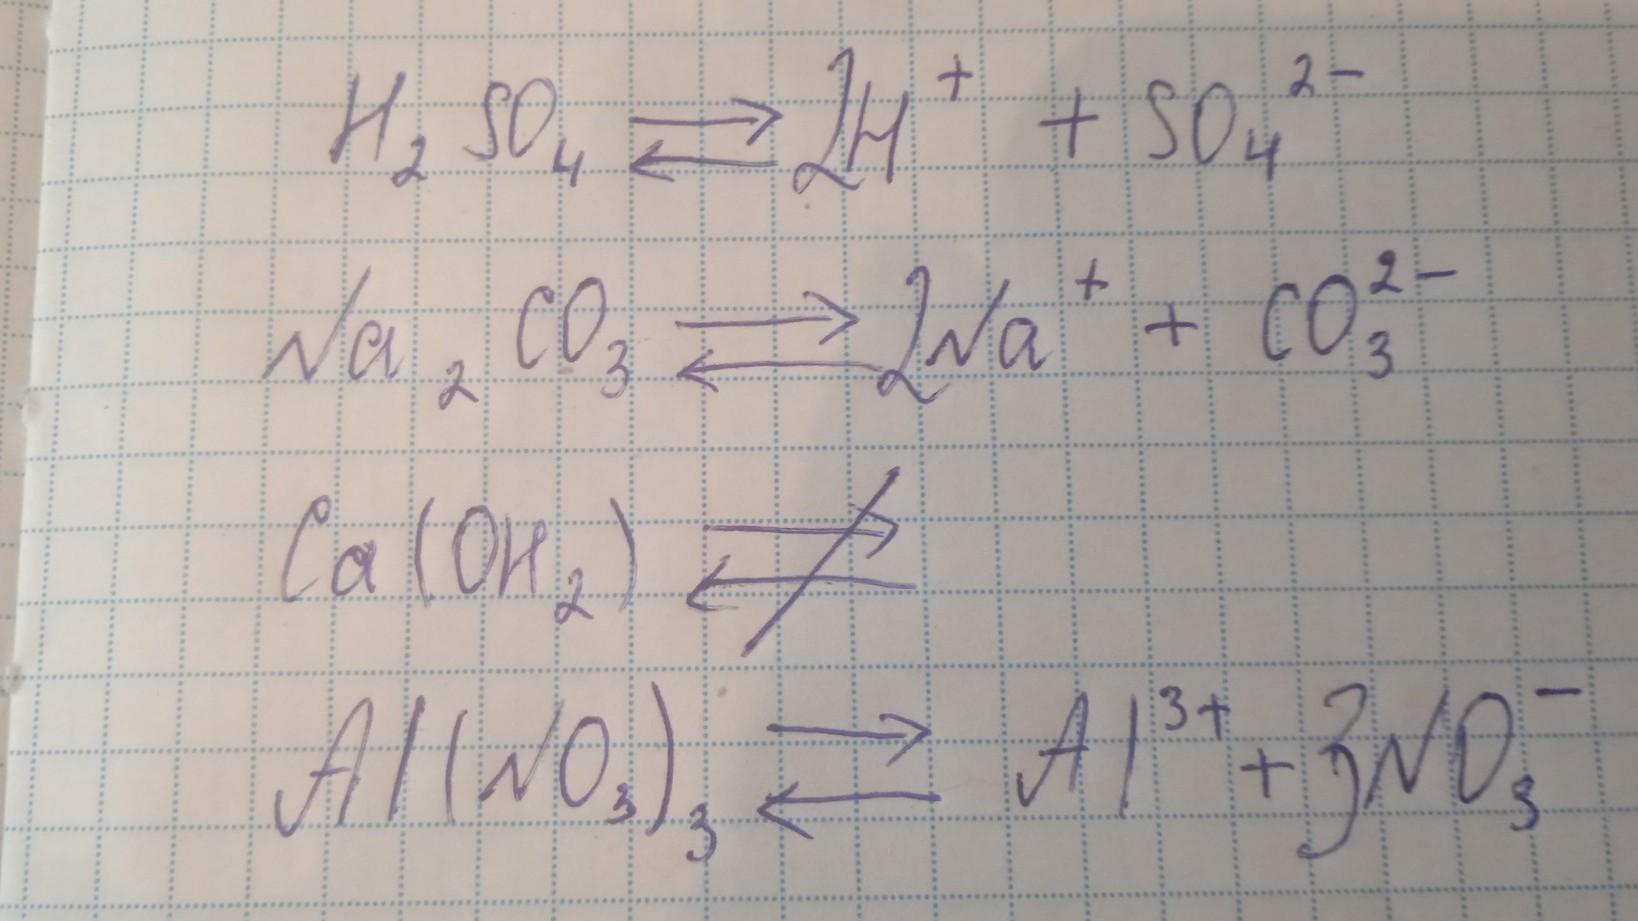 H₂SO₄ ⇄ 2H⁺ + SO₄²⁻
Na₂CO₃ ⇄ 2Na⁺ + CO₃²⁻
Ca(OH₂) ⇄̸
Al(NO₃)₃ ⇄ Al³⁺ + 3NO₃⁻